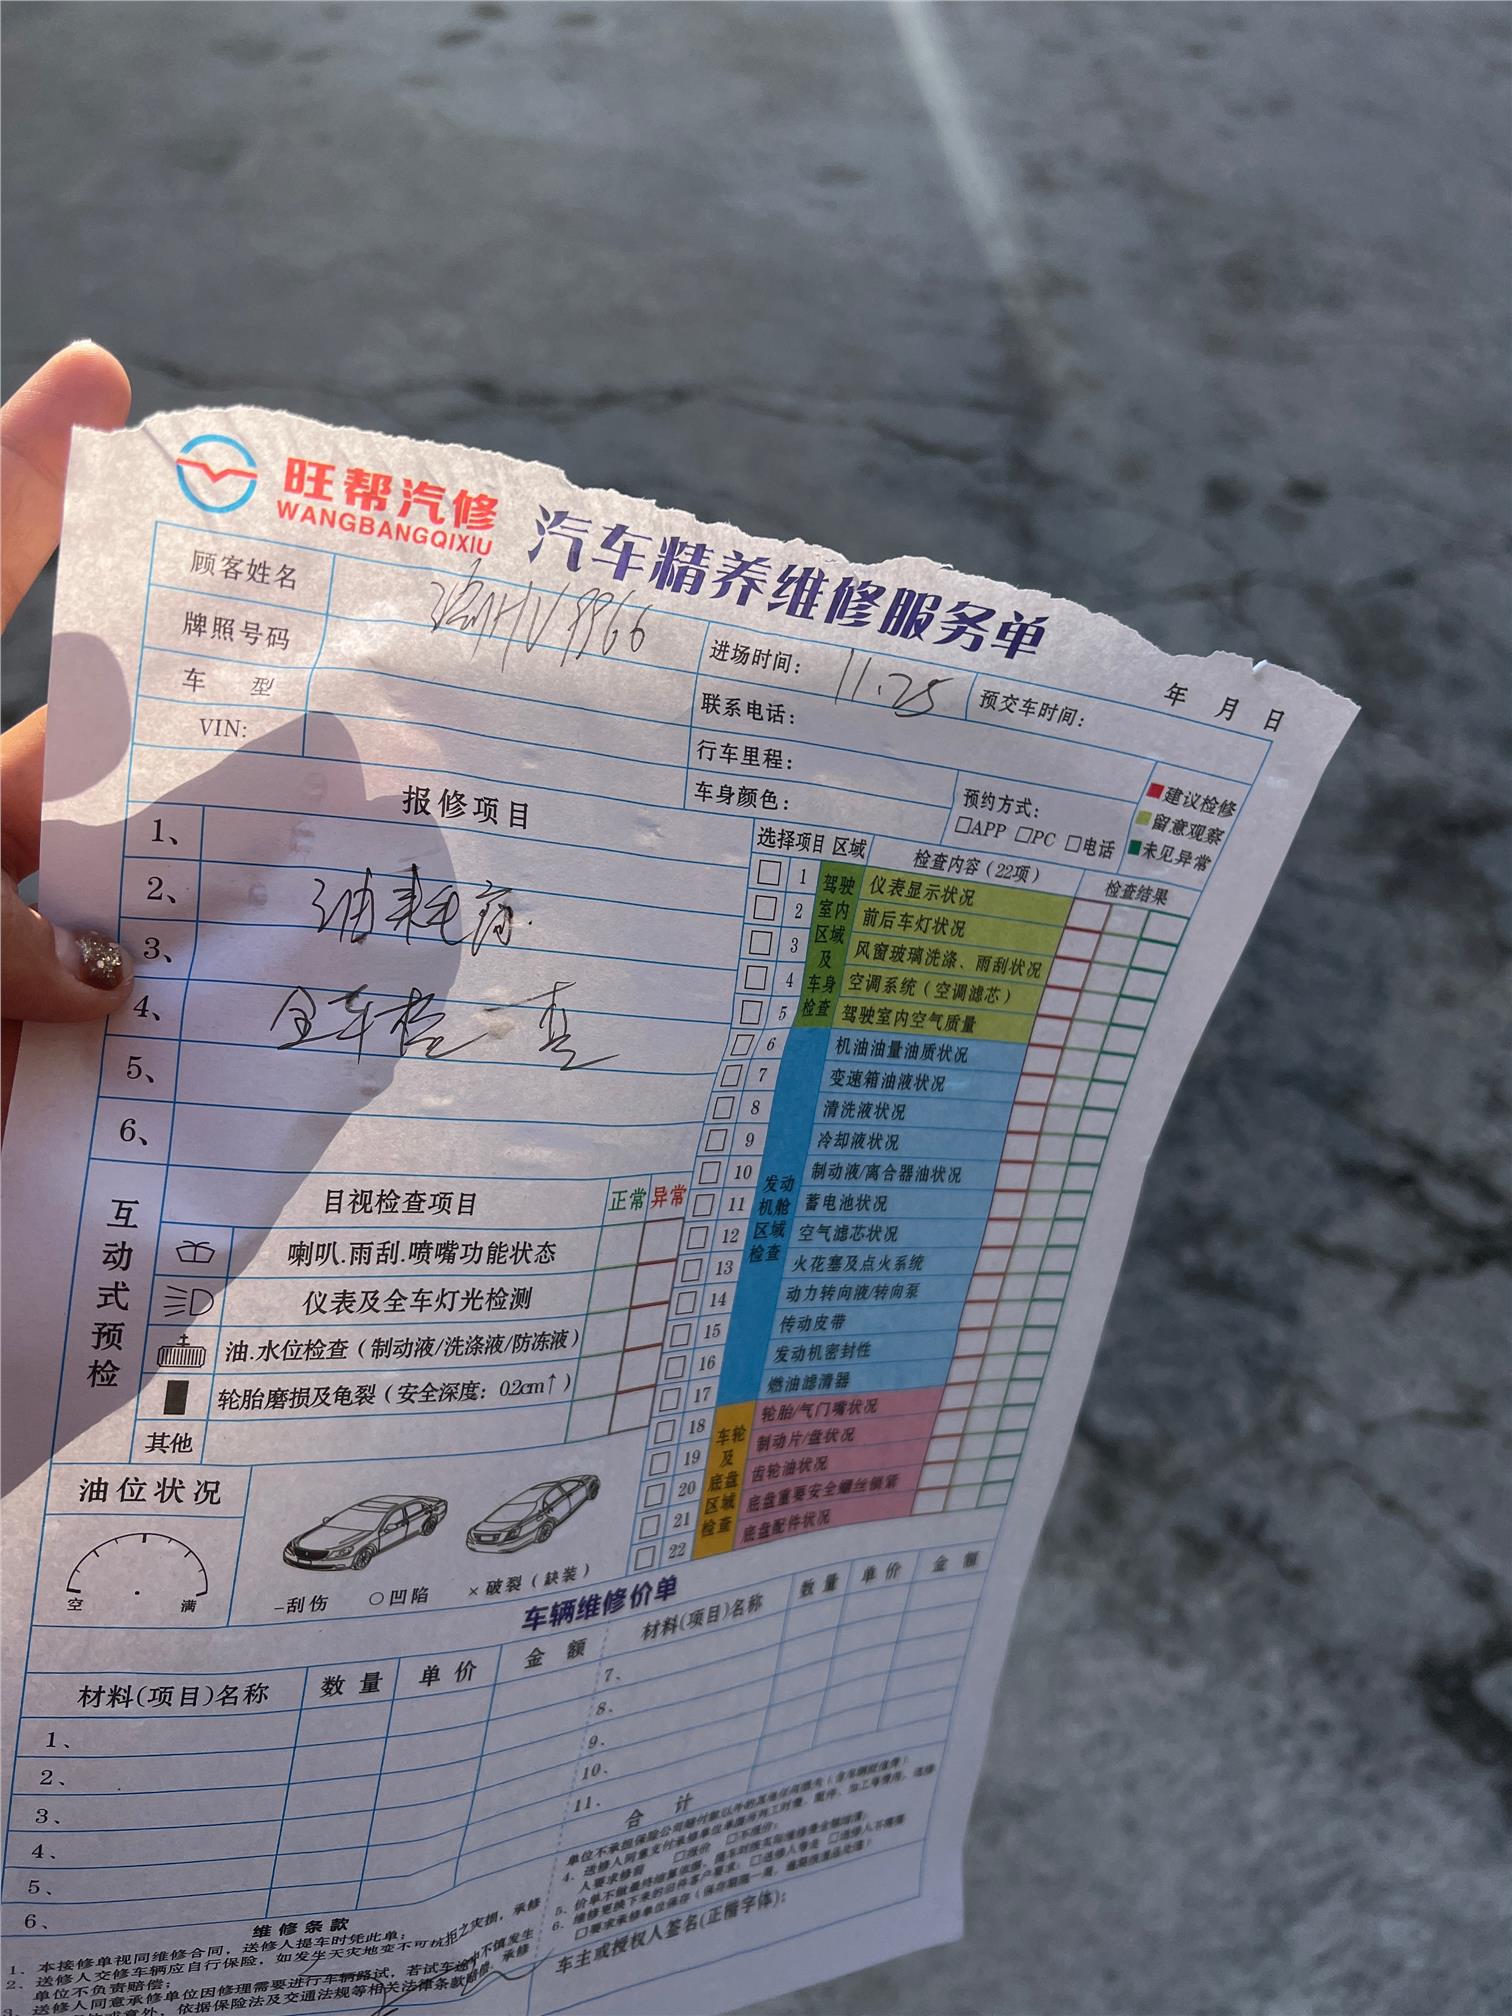 旺帮汽修
WANGBANGQIXIU
汽车精养维修服务单
顾客姓名
牌照号码
进场时间: 11.25
预交车时间:
年 月 日
车 型
联系电话:
VIN:
行车里程:
车身颜色:
预约方式:
□APP □PC □电话
建议检修
留意观察
未见异常
报修项目
1、
2、油耗高
3、
4、全车检查
5、
6、
选择项目 区域 检查内容(22项) 检查结果
驾驶室内区域及车身检查
1 仪表显示状况
2 前后车灯状况
3 风窗玻璃洗涤、雨刮状况
4 空调系统(空调滤芯)
5 驾驶室内空气质量
发动机舱区域检查
6 机油油量油质状况
7 变速箱油液状况
8 清洗液状况
9 冷却液状况
10 制动液/离合器油状况
11 蓄电池状况
12 空气滤芯状况
13 火花塞及点火系统
14 动力转向液/转向泵
15 传动皮带
16 发动机密封性
17 燃油滤清器
车轮及底盘区域检查
18 轮胎/气门嘴状况
19 制动片/盘状况
20 齿轮油状况
21 底盘重要安全螺丝锁紧
22 底盘配件状况
互动式预检
目视检查项目 正常 异常
喇叭.雨刮.喷嘴功能状态
仪表及全车灯光检测
油.水位检查(制动液/洗涤液/防冻液)
轮胎磨损及龟裂(安全深度: 0.2cm↑)
其他
油位状况
空 满
-刮伤 ○凹陷 ×破裂(缺装)
车辆维修价单
材料(项目)名称 数量 单价 金额
材料(项目)名称 数量 单价 金额
1、
2、
3、
4、
5、
6、
7、
8、
9、
10、
11、
合 计
维修条款
1、本接修单视同维修合同，送修人提车时凭此单;
2、送修人交修车辆应自行保险，如发生天灾地变不可抗拒之灾损，承修
单位不负责赔偿;
3、送修人同意承修单位因修理需要进行车辆路试，若试车途中不慎发生
依据保险法及交通法规等相关法律条款赔偿，承修
单位不承担保险公司赔付款以外的其他任何损失
4、送修人同意支付承修单位单据所列工时费、配件、加工等费用，送修
人要求修前 □报价 □不报价;
5、价单不做最终结算依据，提车时按实际维修单金额结清;
6、维修更换下来的旧件客户要求: □送修人带走 □送修人不需要
□要求承修单位保存
车主或授权人签名(正楷字体):